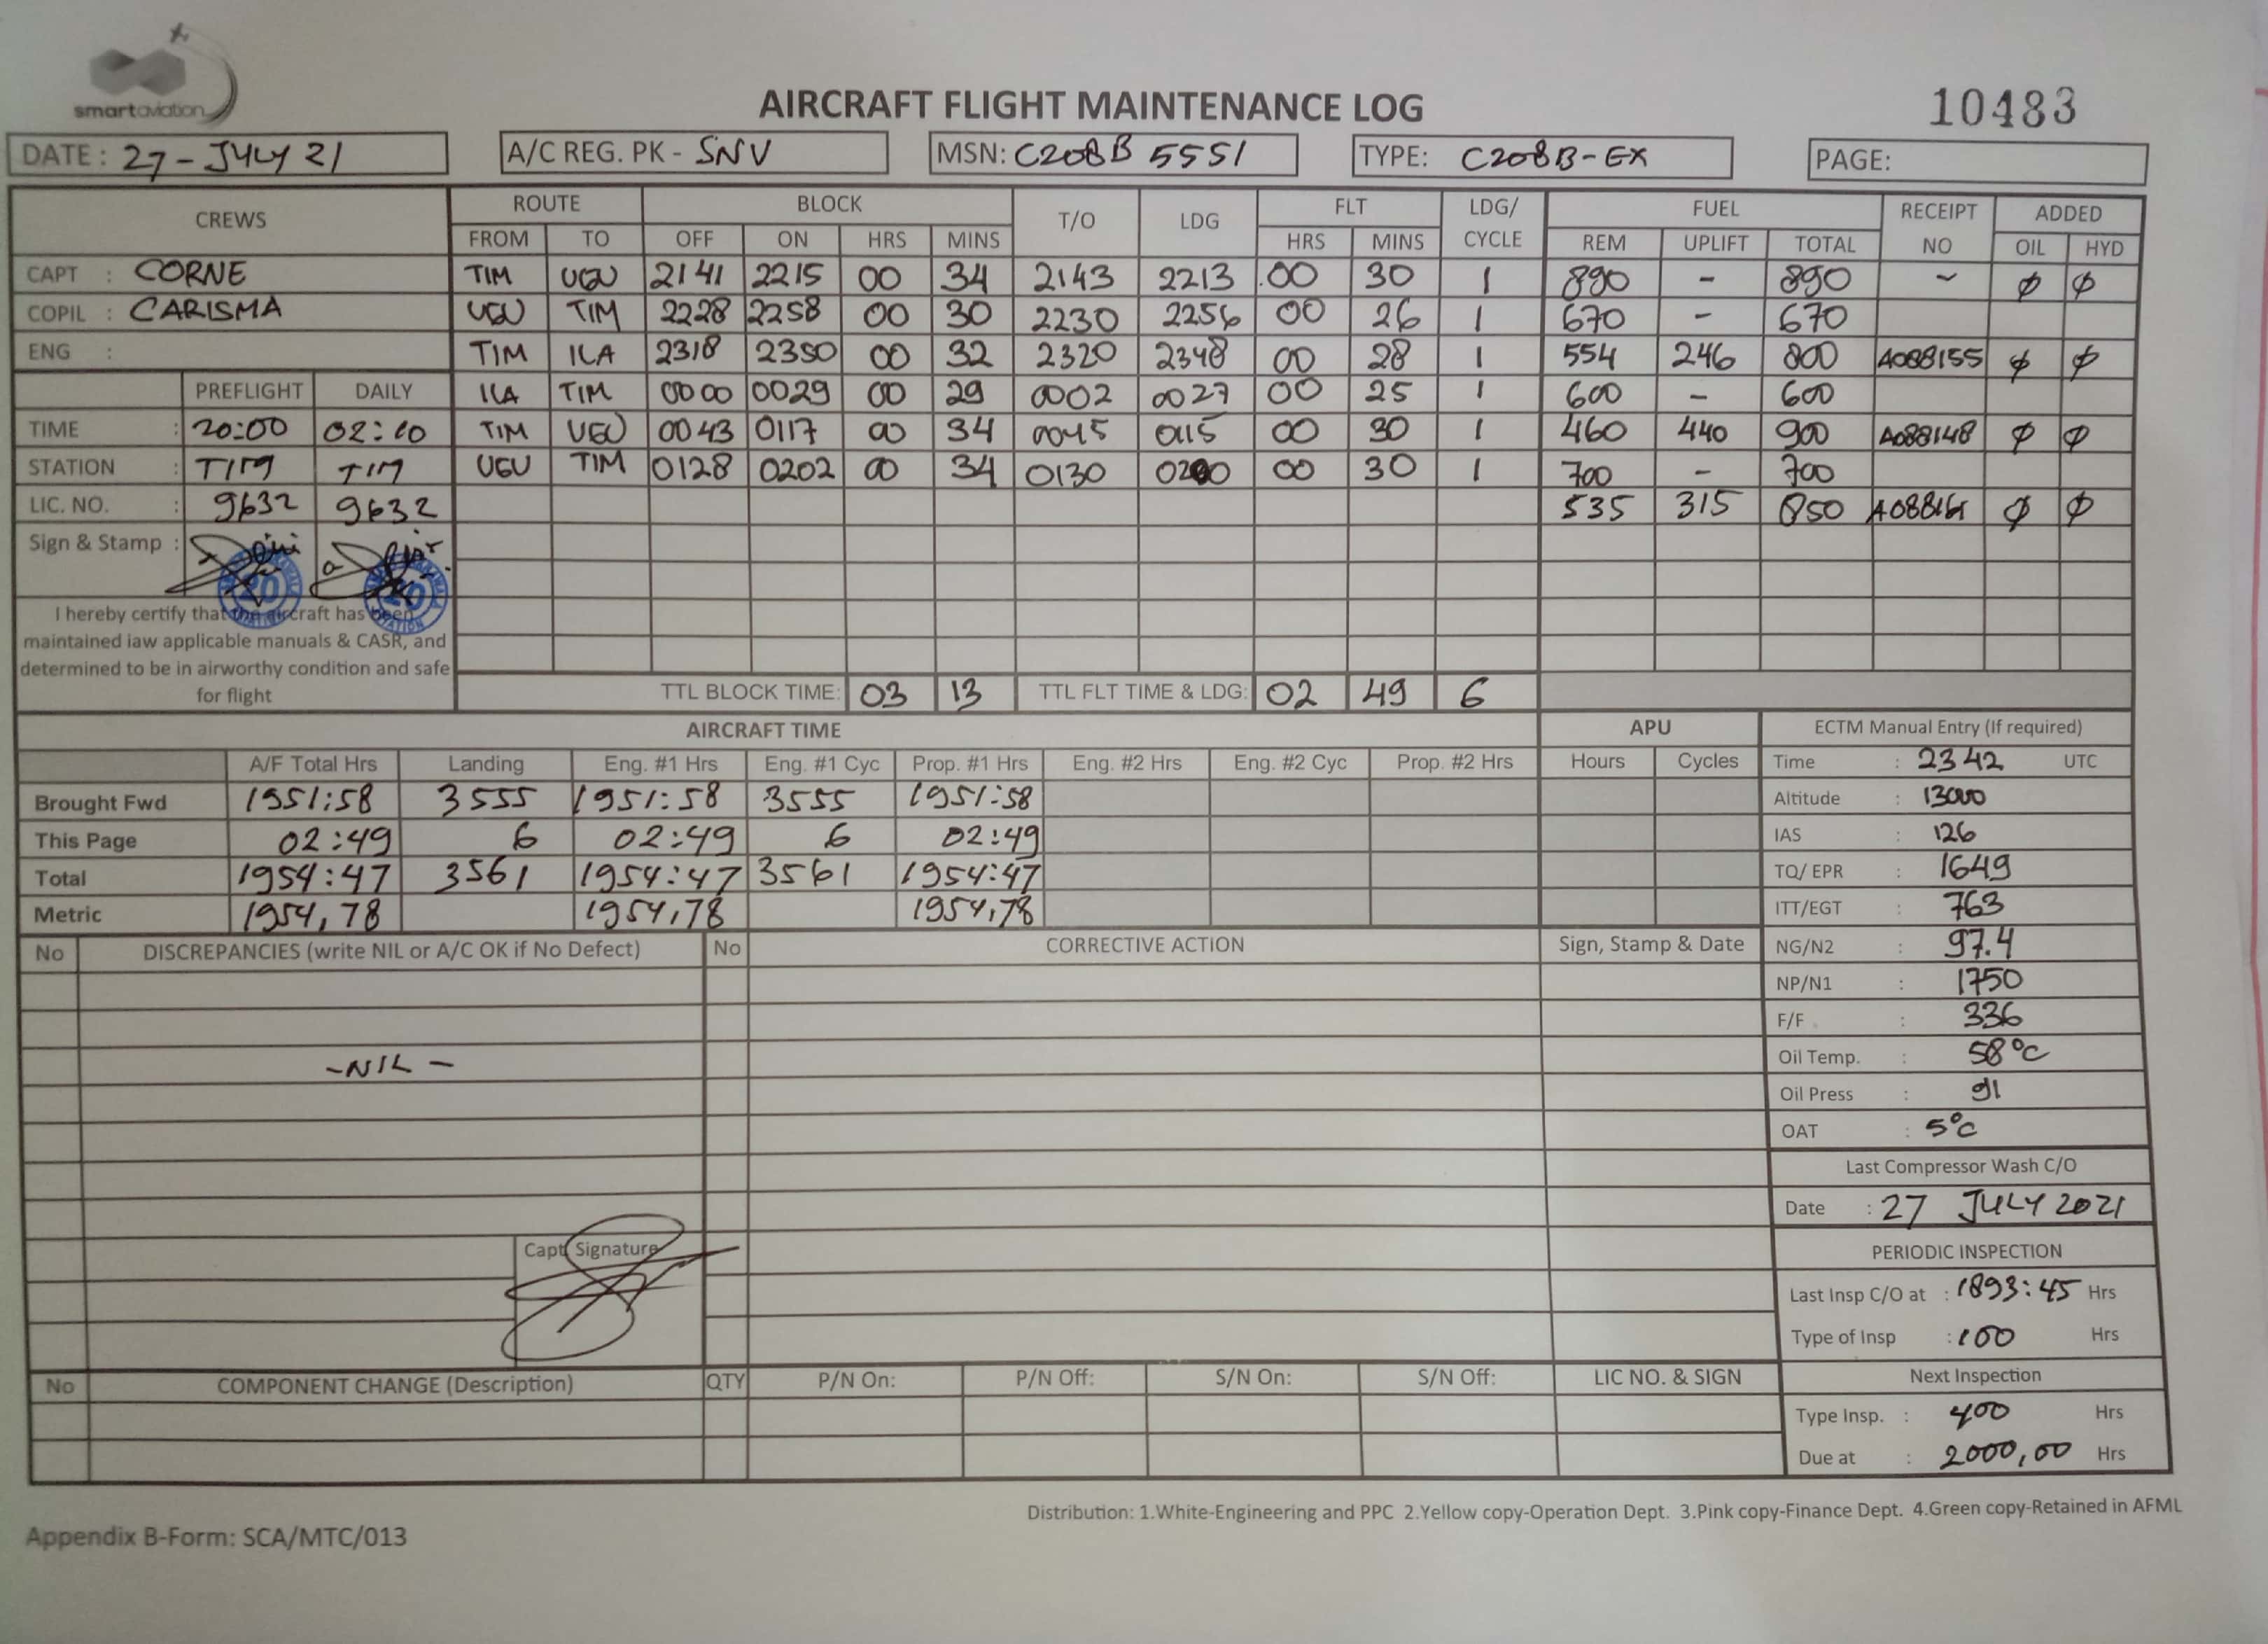 smartaviation
AIRCRAFT FLIGHT MAINTENANCE LOG
10483
DATE : 27 - JULY 21
A/C REG. PK - SNV
MSN: C208B 5551
TYPE: C208B-EX
PAGE:
CREWS ROUTE BLOCK T/O LDG FLT LDG/ CYCLE FUEL RECEIPT NO ADDED
FROM TO OFF ON HRS MINS HRS MINS REM UPLIFT TOTAL OIL HYD
CAPT : CORNE TIM UGU 2141 2215 00 34 2143 2213 00 30 1 890 - 890 - ϕ ϕ
COPIL : CARISMA UGU TIM 2228 2258 00 30 2230 2256 00 26 1 670 - 670
ENG : TIM ILA 2318 2350 00 32 2320 2348 00 28 1 554 246 800 A088155 ϕ ϕ
PREFLIGHT DAILY ILA TIM 0000 0029 00 29 0002 0027 00 25 1 600 - 600
TIME : 20:00 02:10 TIM UGU 0043 0117 00 34 0045 0115 00 30 1 460 440 900 A088148 ϕ ϕ
STATION : TIM TIM UGU TIM 0128 0202 00 34 0130 0200 00 30 1 700 - 700
LIC. NO. : 9632 9632 535 315 850 ϕ ϕ
Sign & Stamp :
20 20
I hereby certify that the aircraft has been
maintained iaw applicable manuals & CASR, and
determined to be in airworthy condition and safe
for flight
TTL BLOCK TIME: 03 13 TTL FLT TIME & LDG: 02 49 6
AIRCRAFT TIME APU ECTM Manual Entry (If required)
A/F Total Hrs Landing Eng. #1 Hrs Eng. #1 Cyc Prop. #1 Hrs Eng. #2 Hrs Eng. #2 Cyc Prop. #2 Hrs Hours Cycles Time : 2342 UTC
Brought Fwd 1951:58 3555 1951:58 3555 1951:58 Altitude : 13000
This Page 02:49 6 02:49 6 02:49 IAS : 126
Total 1954:47 3561 1954:47 3561 1954:47 TQ/ EPR : 1649
Metric 1954,78 1954,78 1954,78 ITT/EGT : 763
No DISCREPANCIES (write NIL or A/C OK if No Defect) No CORRECTIVE ACTION Sign, Stamp & Date NG/N2 : 97.4
NP/N1 : 1750
F/F : 336
- NIL - Oil Temp. : 58°C
Oil Press : 91
OAT : 5°C
Last Compressor Wash C/O
Date : 27 JULY 2021
Capt Signature PERIODIC INSPECTION
Last Insp C/O at : 1893:45 Hrs
Type of Insp : 100 Hrs
No COMPONENT CHANGE (Description) QTY P/N On: P/N Off: S/N On: S/N Off: LIC NO. & SIGN Next Inspection
Type Insp. : 400 Hrs
Due at : 2000,00 Hrs
Distribution: 1.White-Engineering and PPC 2.Yellow copy-Operation Dept. 3.Pink copy-Finance Dept. 4.Green copy-Retained in AFML
Appendix B-Form: SCA/MTC/013